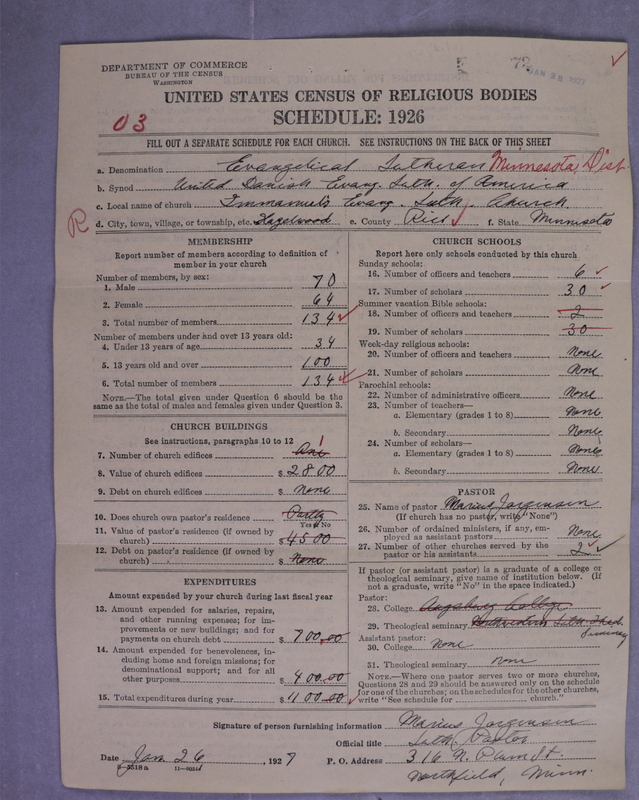 DEPARTMENT OF COMMERCE
BUREAU OF THE CENSUS
WASHINGTON
JAN 28 1927
UNITED STATES CENSUS OF RELIGIOUS BODIES
SCHEDULE: 1926
03
FILL OUT A SEPARATE SCHEDULE FOR EACH CHURCH. SEE INSTRUCTIONS ON THE BACK OF THIS SHEET
a. Denomination Evangelical Lutheran Minnesota Dist
b. Synod United Danish Evang. Luth. of America
c. Local name of church Immanuels Evang. Luth. Church
R d. City, town, village, or township, etc. Hazelwood e. County Rice f. State Minnesota
MEMBERSHIP
Report number of members according to definition of
member in your church
Number of members, by sex:
1. Male 70
2. Female 64
3. Total number of members 134
Number of members under and over 13 years old:
4. Under 13 years of age 34
5. 13 years old and over 100
6. Total number of members 134
NOTE.—The total given under Question 6 should be the
same as the total of males and females given under Question 3.
CHURCH BUILDINGS
See instructions, paragraphs 10 to 12
7. Number of church edifices One 1
8. Value of church edifices $ 2800
9. Debt on church edifices $ None
10. Does church own pastor's residence Partly
Yes or No
11. Value of pastor's residence (if owned by
church) $ 4500
12. Debt on pastor's residence (if owned by
church) $ None
EXPENDITURES
Amount expended by your church during last fiscal year
13. Amount expended for salaries, repairs,
and other running expenses; for im-
provements or new buildings; and for
payments on church debt $ 700.00
14. Amount expended for benevolences, in-
cluding home and foreign missions; for
denominational support; and for all
other purposes $ 400.00
15. Total expenditures during year $ 1100.00
CHURCH SCHOOLS
Report here only schools conducted by this church
Sunday schools:
16. Number of officers and teachers 6
17. Number of scholars 30
Summer vacation Bible schools:
18. Number of officers and teachers 2
19. Number of scholars 30
Week-day religious schools:
20. Number of officers and teachers None
21. Number of scholars None
Parochial schools:
22. Number of administrative officers None
23. Number of teachers—
a. Elementary (grades 1 to 8) None
b. Secondary None
24. Number of scholars—
a. Elementary (grades 1 to 8) None
b. Secondary None
PASTOR
25. Name of pastor Marius Jorgensen
(If church has no pastor, write "None")
26. Number of ordained ministers, if any, em-
ployed as assistant pastors None
27. Number of other churches served by the
pastor or his assistants 2
If pastor (or assistant pastor) is a graduate of a college or
theological seminary, give name of institution below. (If
not a graduate, write "No" in the space indicated.)
Pastor:
28. College Augsburg College
29. Theological seminary Luth. Theol.
Seminary
Assistant pastor:
30. College None
31. Theological seminary none
NOTE.—Where one pastor serves two or more churches,
Questions 28 and 29 should be answered only on the schedule
for one of the churches; on the schedules for the other churches,
write "See schedule for church."
Signature of person furnishing information Marius Jorgensen
Official title Luth. Pastor
Date Jan 26, 1927 P. O. Address 316 N. Plum St.
Northfield, Minn.